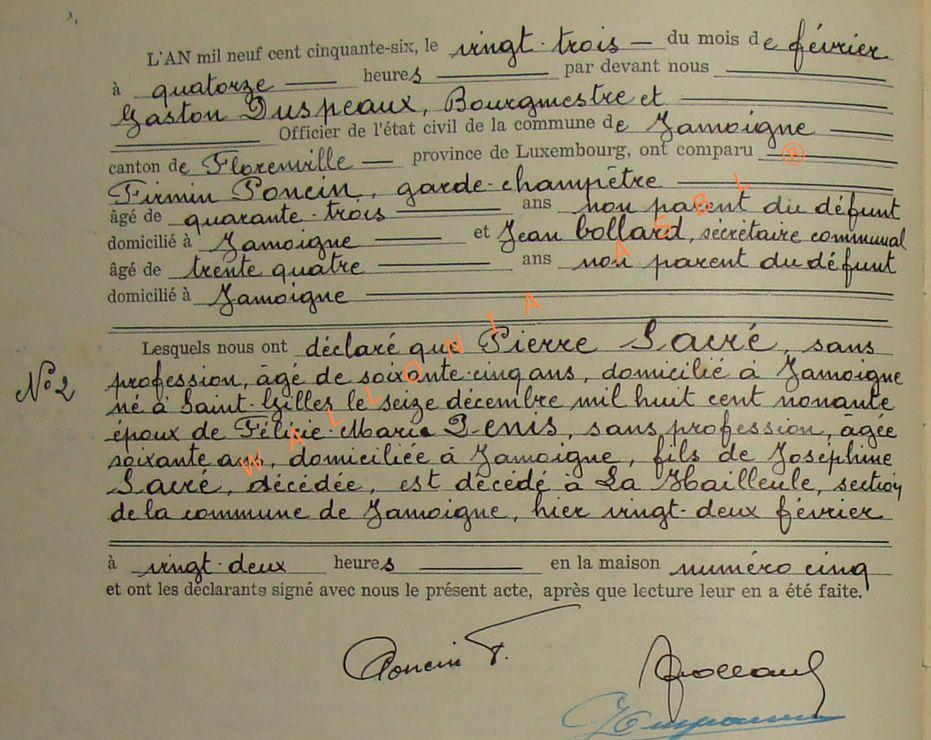 L'AN mil neuf cent cinquante-six, le vingt-trois du mois de février
à quatorze heures par devant nous
Gaston Duspeaux, Bourgmestre et
Officier de l'état civil de la commune de Jamoigne
canton de Florenville province de Luxembourg, ont comparu
Firmin Poncin, garde-champêtre
âgé de quarante-trois ans non parent du défunt
domicilié à Jamoigne et Jean bollard, sécrétaire communal
âgé de trente quatre ans non parent du défunt
domicilié à Jamoigne
Lesquels nous ont déclaré que Pierre Sacré, sans
N° 2
profession, âgé de soixante-cinq ans, domicilié à Jamoigne
né à Saint-Gilles le seize décembre mil huit cent nonante
époux de Félicie-Marie Denis, sans profession, âgée
soixante ans, domiciliée à Jamoigne, fils de Joséphine
Sacré, décédée, est décédé à La Hailleule, section
de la commune de Jamoigne, hier vingt-deux février
à vingt-deux heures en la maison numéro cinq
et ont les déclarants signé avec nous le présent acte, après que lecture leur en a été faite.
Poncin F.
WALLONIA ASBL ®